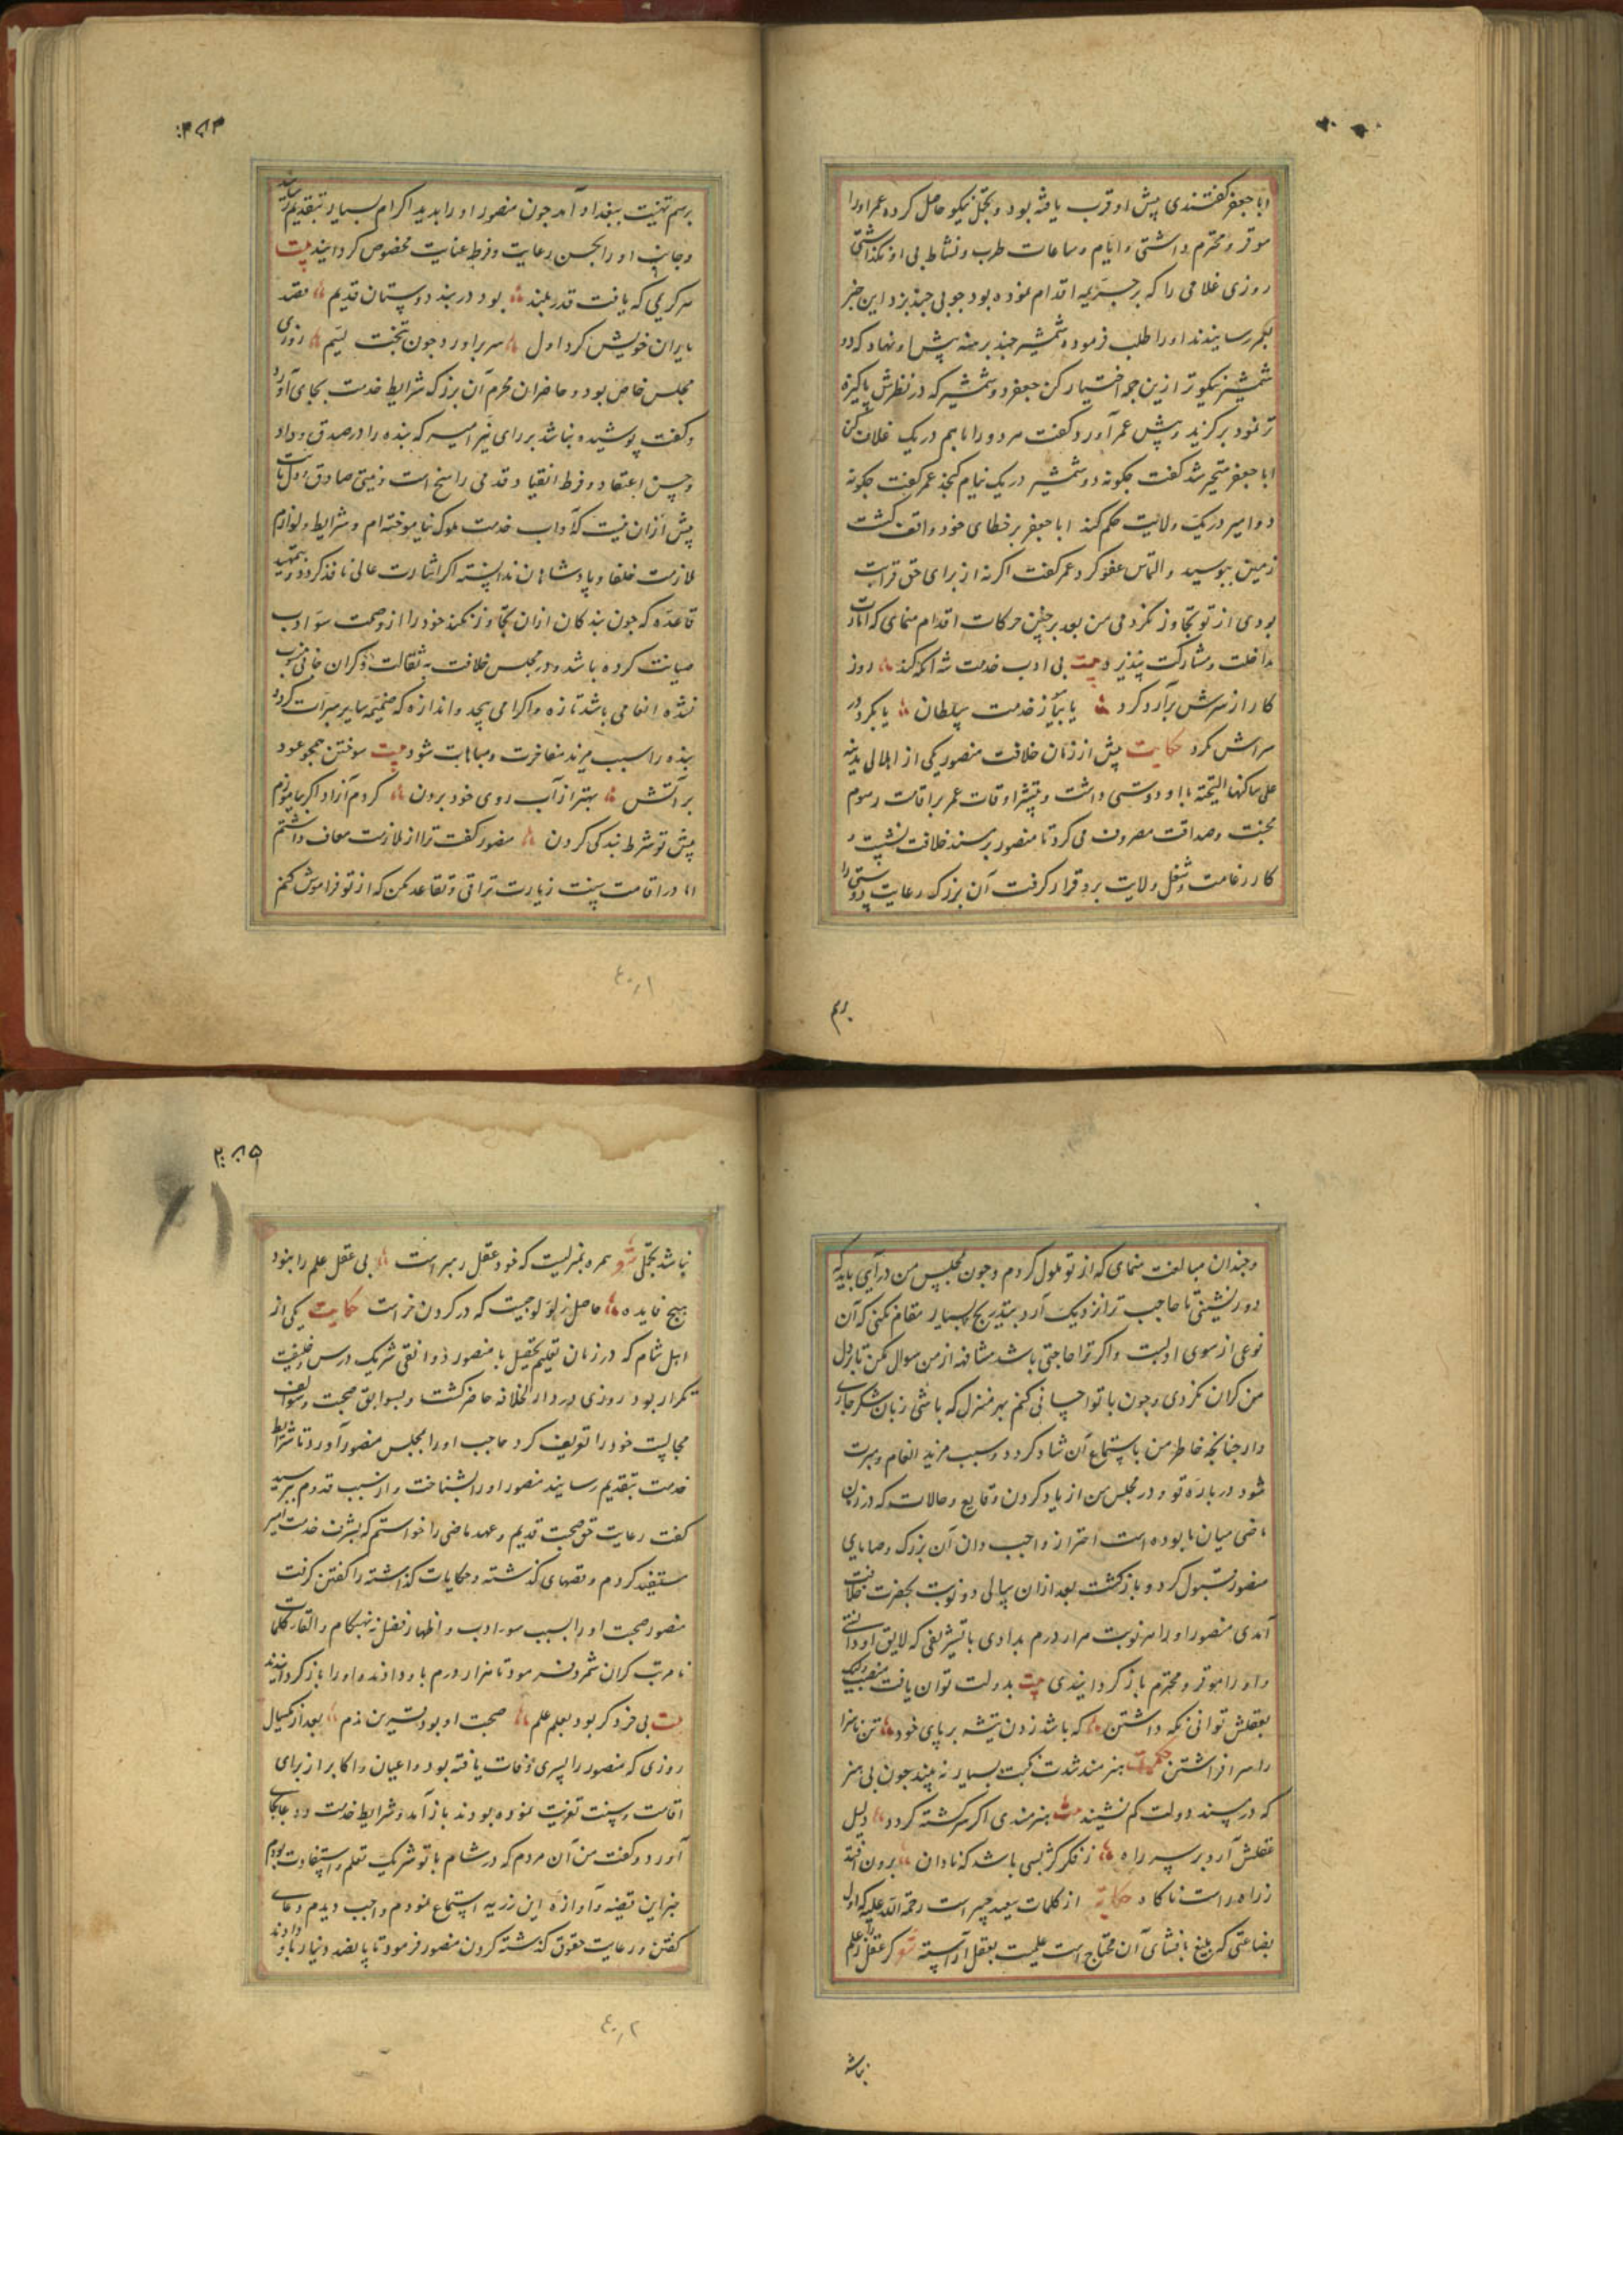 ابا جعفر گفتندی پیش او قرب یافته بود و تجمل نیکو حاصل کرده عمر او را
موقر و محترم داشتی و ایام و ساعات طرب و نشاط بی او نگذاشتی
روزی غلامی را که بر جریمه اقدام نموده بود چوبی چند بزد این خبر
بعمر رسانیدند او را طلب فرمود و شمشیر چند برهنه پیش او نهاد که دو
شمشیر نیکوتر ازین جمله اختیار کن جعفر دو شمشیر که در نظرش پاکیزه
تر نمود برگزید و پیش عمر آورد گفت هر دو را باهم در یک غلاف کن
ابا جعفر متحیر شد گفت چگونه دو شمشیر در یک نیام گنجد عمر گفت چگونه
دو امیر در یک ولایت حکم کند ابا جعفر بر خطای خود واقف گشت
زمین ببوسید و التماس عفو کرد عمر گفت اگر نه از برای حق قرابت
بودی از تو تجاوز نکردمی من بعد بر چنین حرکات اقدام منمای که امارت
مداخلت و مشارکت نپذیرد بیت بی ادب خدمت شه آنکه کند روز
کار از سرش برآرد گرد یا بپرهیز ز خدمت سلطان یا بگرد در
سراش مگرد حکایت پیش از زمان خلافت منصور یکی از اهالی مدینه
علی ساکنها التحیة با او دوستی داشت و بیشتر اوقات عمر بر اقامت رسوم
محبت و صداقت مصروف می کرد تا منصور بر مسند خلافت نشست و
کار زعامت و شغل ولایت برو قرار گرفت آن بزرگ رعایت دوستی را
برسم
۲۸۴
برسم تهنیت ببغداد آمد چون منصور او را بدید اکرام بسیار بتقدیم رسانید
و جانب او را بحسن رعایت و فرط عنایت مخصوص گردانید بیت
هر کریمی که یافت قدر بلند بود در بند دوستان قدیم قصد
یاران خویش کرد اول سر برآورد چون بتخت لئیم روزی
مجلس خاص بود و حاضران محرم آن بزرگ شرایط خدمت بجای آورد
و گفت پوشیده نباشد بر رای منیر امیر که بنده را در صدق وداد
و حسن اعتقاد و فرط انقیاد قدمی راسخ است و نیتی صادق و دل ثابت
پیش ازان نیست که آداب خدمت ملوک نیاموخته ام و شرایط و لوازم
ملازمت خلفا و پادشاهان ندانسته اگر اشارت عالی نافذ گردد بتمهید
قاعده که چون بندگان ازان تجاوز نکند خود را از وصمت سوء ادب
صیانت کرده باشد و در مجلس خلافت به ثقالت و گران جانی منسوب
نشده انعامی باشد تازه و اکرامی بیحد و اندازه که ضمیمه سایر مبرات گردد
بنده را سبب مزید مفاخرت و مباهات شود بیت سوختن همچو عود
بر آتش بهتر از آب روی خود بردن گردم آزاد اگر بیاموزم
پیش تو شرط بندگی کردن منصور گفت ترا از ملازمت معاف داشتم
اما در اقامت سنت زیارت توانی و تقاعد مکن که از تو فراموش کنم
٤٠١
و چندان مبالغت منمای که از تو ملول گردم و چون بمجلس من درآیی باید که
دور نشینی تا حاجب ترا نزدیک آرد بتدریج و بسیار مقام نکنی که آن
نوعی از سوی ادبست و اگر ترا حاجتی باشد مشافهه از من سوال مکن تا بر دل
من گران نگردی و چون با تو احسانی کنم بهر منزل که باشی زبان بشکر جاری
دار چنانچه خاطر من باستماع آن شاد گردد و سبب مزید انعام و مبرت
شود در باره تو و در مجلس من از یاد کردن وقایع و حالات که در زمان
ماضی میان ما بوده است احتراز واجب دان آن بزرگ وصایای
منصور قبول کرد و بازگشت بعد ازان بسالی دو نوبت بحضرت خلافت
آمدی منصور او را هر نوبت هزار درم بدادی با تشریفی که لایق او دانستی
و او را موقر و محترم باز گردانیدی بیت بدولت توان یافت منصب ولیک
بعقلش توانی نگه داشتن که باشد زدن تیشه بر پای خود تن ناسزا
را سر افراشتن حکمت هنرمند شدت نکبت بسیار نه بیند چون بی هنر
که در مسند دولت کم نشیند بیت هنرمندی اگر سرگشته گردد دلیل
عقلش آرد بر سر راه ز فکر کژ بسی باشد که نادان برون افتد
ز راه راست ناگاه حکایة از کلمات سعید جبیر است رحمة الله علیه که اول
بضاعتی که مبلغ بافشای آن محتاج است علمیست بعقل آراسته شعر گر عقل را علم
نباشد
۲۸۵
نباشد تجملی شعر همره بمنزلیست که خود عقل رهبر است بی عقل علم را نبود
هیچ فایده حاصل ز لؤلؤ چیست که در گردن خر است حکایت یکی از
اهل شام که در زمان تعلیم و تحصیل با منصور ذوانقی شریک درس و خلیفت
تکرار بود روزی در دار الخلافه حاضر گشت و بسوابق صحبت و سوالف
مجالست خود را تعریف کرد حاجب او را بمجلس منصور آورد تا شرایط
خدمت بتقدیم رسانید منصور او را بشناخت و از سبب قدوم بپرسید
گفت رعایت حق صحبت قدیم و عهد ماضی را خواستم که بشرف خدمت امیر
مستفید گردم و قصهای گذشته و حکایات گذاشته را گفتن گرفت
منصور صحبت او را بسبب سوء ادب و اظهار فضل نه بهنگام و القاء کلمات
نا مرتب گران شمرد و فرمود تا هزار درم باو دادند و او را باز گردانیدند
بیت بی خرد گر بود بعلم علم صحبت او بود نشرین ندم بعد از یکسال
روزی که منصور را پسری وفات یافته بود و اعیان و اکابر از برای
اقامت سنت تعزیت نموده بودند باز آمد و شرایط خدمت و دعا بجای
آورد و گفت من آن مردم که در شام با تو شریک تعلم و استفادت بودم
خبر این قضیه و آوازه این رزیه استماع نمودم واجب دیدم دعای
گفتن و رعایت حقوق گذشته کردن منصور فرمود تا پانصد دینار باو دادند
٤٠٢